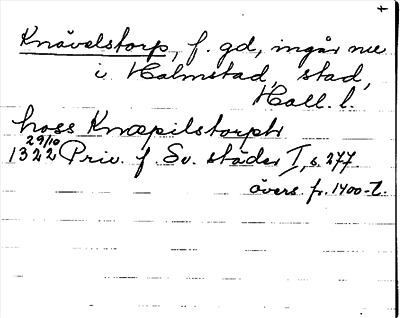 +
Knävelstorp, f. gd, ingår nu
i Halmstad, stad,
Hall. l.
hoss Knæpilstorph
29/10
1322 Priv. f. Sv. städer I, s. 277.
övers. fr. 1400-t.